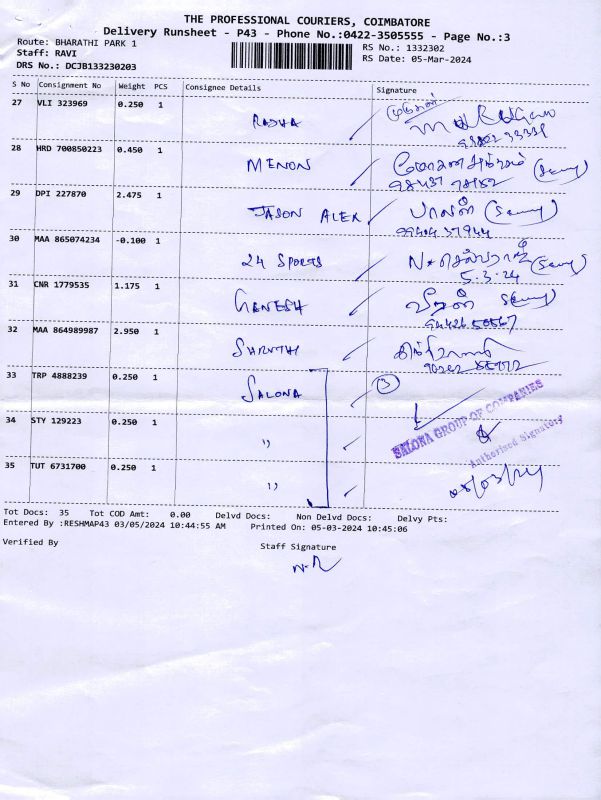 THE PROFESSIONAL COURIERS, COIMBATORE
Delivery Runsheet - P43 - Phone No.:0422-3505555 - Page No.:3
Route: BHARATHI PARK 1
RS No.: 1332302
Staff: RAVI
RS Date: 05-Mar-2024
DRS No.: DCJB133230203
S No Consignment No Weight PCS Consignee Details Signature
27 VLI 323969 0.250 1 RADHA
28 HRD 700850223 0.450 1 MENON
29 DPI 227870 2.475 1 JASON ALEX
99404 37944
30 MAA 865074234 -0.100 1 24 SPORTS
5.3.24
31 CNR 1779535 1.175 1 GANESH
32 MAA 864989987 2.950 1 SHRUTHI
33 TRP 4888239 0.250 1 SALONA 3
34 STY 129223 0.250 1 ,,
SALONA GROUP OF COMPANIES
Authorised Signatory
35 TUT 6731700 0.250 1 ,,
Tot Docs: 35 Tot COD Amt: 0.00 Delvd Docs: Non Delvd Docs: Delvy Pts:
Entered By :RESHMAP43 03/05/2024 10:44:55 AM Printed On: 05-03-2024 10:45:06
Verified By Staff Signature